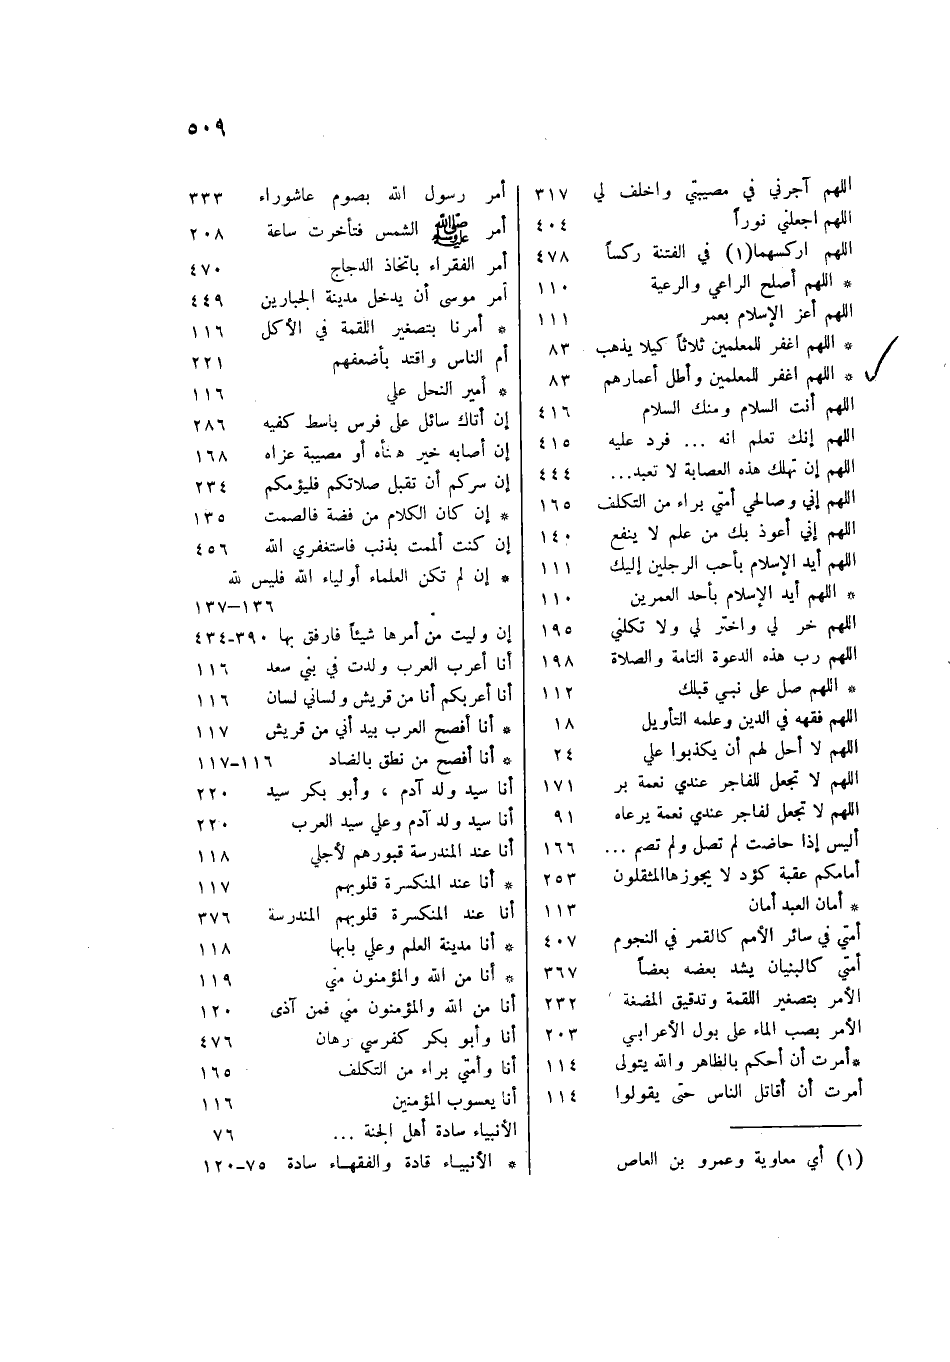 ٥٠٩
اللهم آجرني في مصيبتي واخلف لي ٣١٧
اللهم اجعلني نوراً ٤٠٤
اللهم اركسهما(١) في الفتنة ركساً ٤٧٨
* اللهم أصلح الراعي والرعية ١١٠
اللهم أعز الإسلام بعمر ١١١
* اللهم اغفر للمعلمين ثلاثاً كيلا يذهب ٨٣
* اللهم اغفر للمعلمين وأطل أعمارهم ٨٣
اللهم أنت السلام ومنك السلام ٤١٦
اللهم إنك تعلم انه ... فرد عليه ٤١٥
اللهم إن تهلك هذه العصابة لا تعبد... ٤٤٤
اللهم إني وصالحي أمتي براء من التكلف ١٦٥
اللهم إني أعوذ بك من علم لا ينفع ١٤٠
اللهم أيد الإسلام بأحب الرجلين إليك ١١١
* اللهم أيد الإسلام بأحد العمرين ١١٠
اللهم خر لي واختر لي ولا تكلني ١٩٥
اللهم رب هذه الدعوة التامة والصلاة ١٩٨
* اللهم صل على نبي قبلك ١١٢
اللهم فقهه في الدين وعلمه التأويل ١٨
اللهم لا أحل لهم أن يكذبوا علي ٢٤
اللهم لا تجعل للفاجر عندي نعمة بر ١٧١
اللهم لا تجعل لفاجر عندي نعمة يرعاه ٩١
أليس إذا حاضت لم تصل ولم تصم ... ١٦٦
أمامكم عقبة كؤد لا يجوزها المثقلون ٢٥٣
* أمان العبد أمان ١١٣
أمتي في سائر الأمم كالقمر في النجوم ٤٠٧
أمتي كالبنيان يشد بعضه بعضاً ٣٦٧
الأمر بتصغير اللقمة وتدقيق المضغة ٢٣٢
الأمر بصب الماء على بول الأعرابي ٢٠٣
*أمرت أن أحكم بالظاهر والله يتولى ١١٤
أمرت أن أقاتل الناس حتى يقولوا ١١٤
(١) أي معاوية وعمرو بن العاص
أمر رسول الله بصوم عاشوراء ٣٣٣
أمر ﷺ الشمس فتأخرت ساعة ٢٠٨
أمر الفقراء باتخاذ الدجاج ٤٧٠
أمر موسى أن يدخل مدينة الجبارين ٤٤٩
* أمرنا بتصغير اللقمة في الأكل ١١٦
أم الناس واقتد بأضعفهم ٢٢١
* أمير النحل علي ١١٦
إن أتاك سائل على فرس باسط كفيه ٢٨٦
إن أصابه خير هنأه أو مصيبة عزاه ١٦٨
إن سركم أن تقبل صلاتكم فليؤمكم ٢٣٤
* إن كان الكلام من فضة فالصمت ١٣٥
إن كنت ألممت بذنب فاستغفري الله ٤٥٦
* إن لم تكن العلماء أولياء الله فليس لله
١٣٦–١٣٧
إن وليت من أمرها شيئاً فارفق بها ٣٩٠-٤٣٤
أنا أعرب العرب ولدت في بني سعد ١١٦
أنا أعربكم أنا من قريش ولساني لسان ١١٦
* أنا أفصح العرب بيد أني من قريش ١١٧
* أنا أفصح من نطق بالضاد ١١٦-١١٧
أنا سيد ولد آدم ، وأبو بكر سيد ٢٢٠
أنا سيد ولد آدم وعلي سيد العرب ٢٢٠
أنا عند المندرسة قبورهم لأجلي ١١٨
* أنا عند المنكسرة قلوبهم ١١٧
أنا عند المنكسرة قلوبهم المندرسة ٣٧٦
* أنا مدينة العلم وعلي بابها ١١٨
* أنا من الله والمؤمنون مني ١١٩
أنا من الله والمؤمنون مني فمن آذى ١٢٠
أنا وأبو بكر كفرسي رهان ٤٧٦
أنا وأمتي براء من التكلف ١٦٥
أنا يعسوب المؤمنين ١١٦
الأنبياء سادة أهل الجنة ... ٧٦
* الأنبياء قادة والفقهاء سادة ٧٥-١٢٠